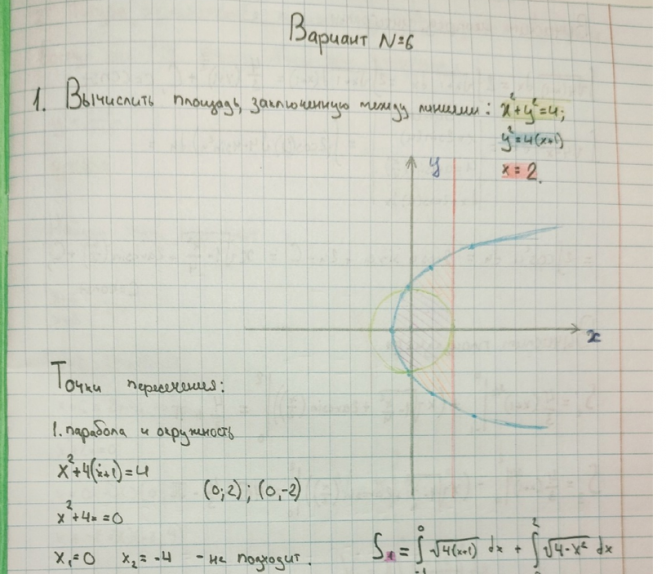 Вариант №6
1. Вычислить площадь, заключенную между линиями: x²+y²=4;
y²=4(x+1)
x=2.
y
x
Точки пересечения:
1. парабола и окружность
x²+4(x+1)=4
(0;2); (0,-2)
x²+4x=0
x₁=0 x₂=-4 - не подходит.
∫₋₁⁰ √4(x+1) dx + ∫₀² √4-x² dx